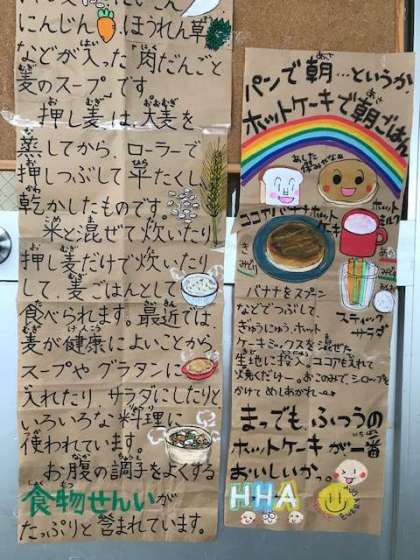 にんじん、ほうれん草
などが入った「肉だんごと
麦のスープ」です。
押し麦は、大麦を
蒸してから、ローラーで
押しつぶして平たくし、
乾かしたものです。
米と混ぜて炊いたり
押し麦だけで炊いたり
して、麦ごはんとして
食べられます。最近では、
麦が健康によいことから、
スープやグラタンに
入れたり、サラダにしたりと
いろいろな料理に
使われています。
お腹の調子をよくする
食物せんいが
たっぷりと含まれています。
パンで朝…というか
ホットケーキで朝ごはん
ココアバナナホットケーキ
ホットミルク
きみどり
スティックサラダ
バナナをスプーン
などでつぶして、
ぎゅうにゅう、ホット
ケーキミックスを混ぜた
生地に投入。ココアも入れて
焼くだけー。おこのみで、シロップを
かけてめしあがれー。
まっでも、ふつうの
ホットケーキが一番
おいしいかっ。
HHA